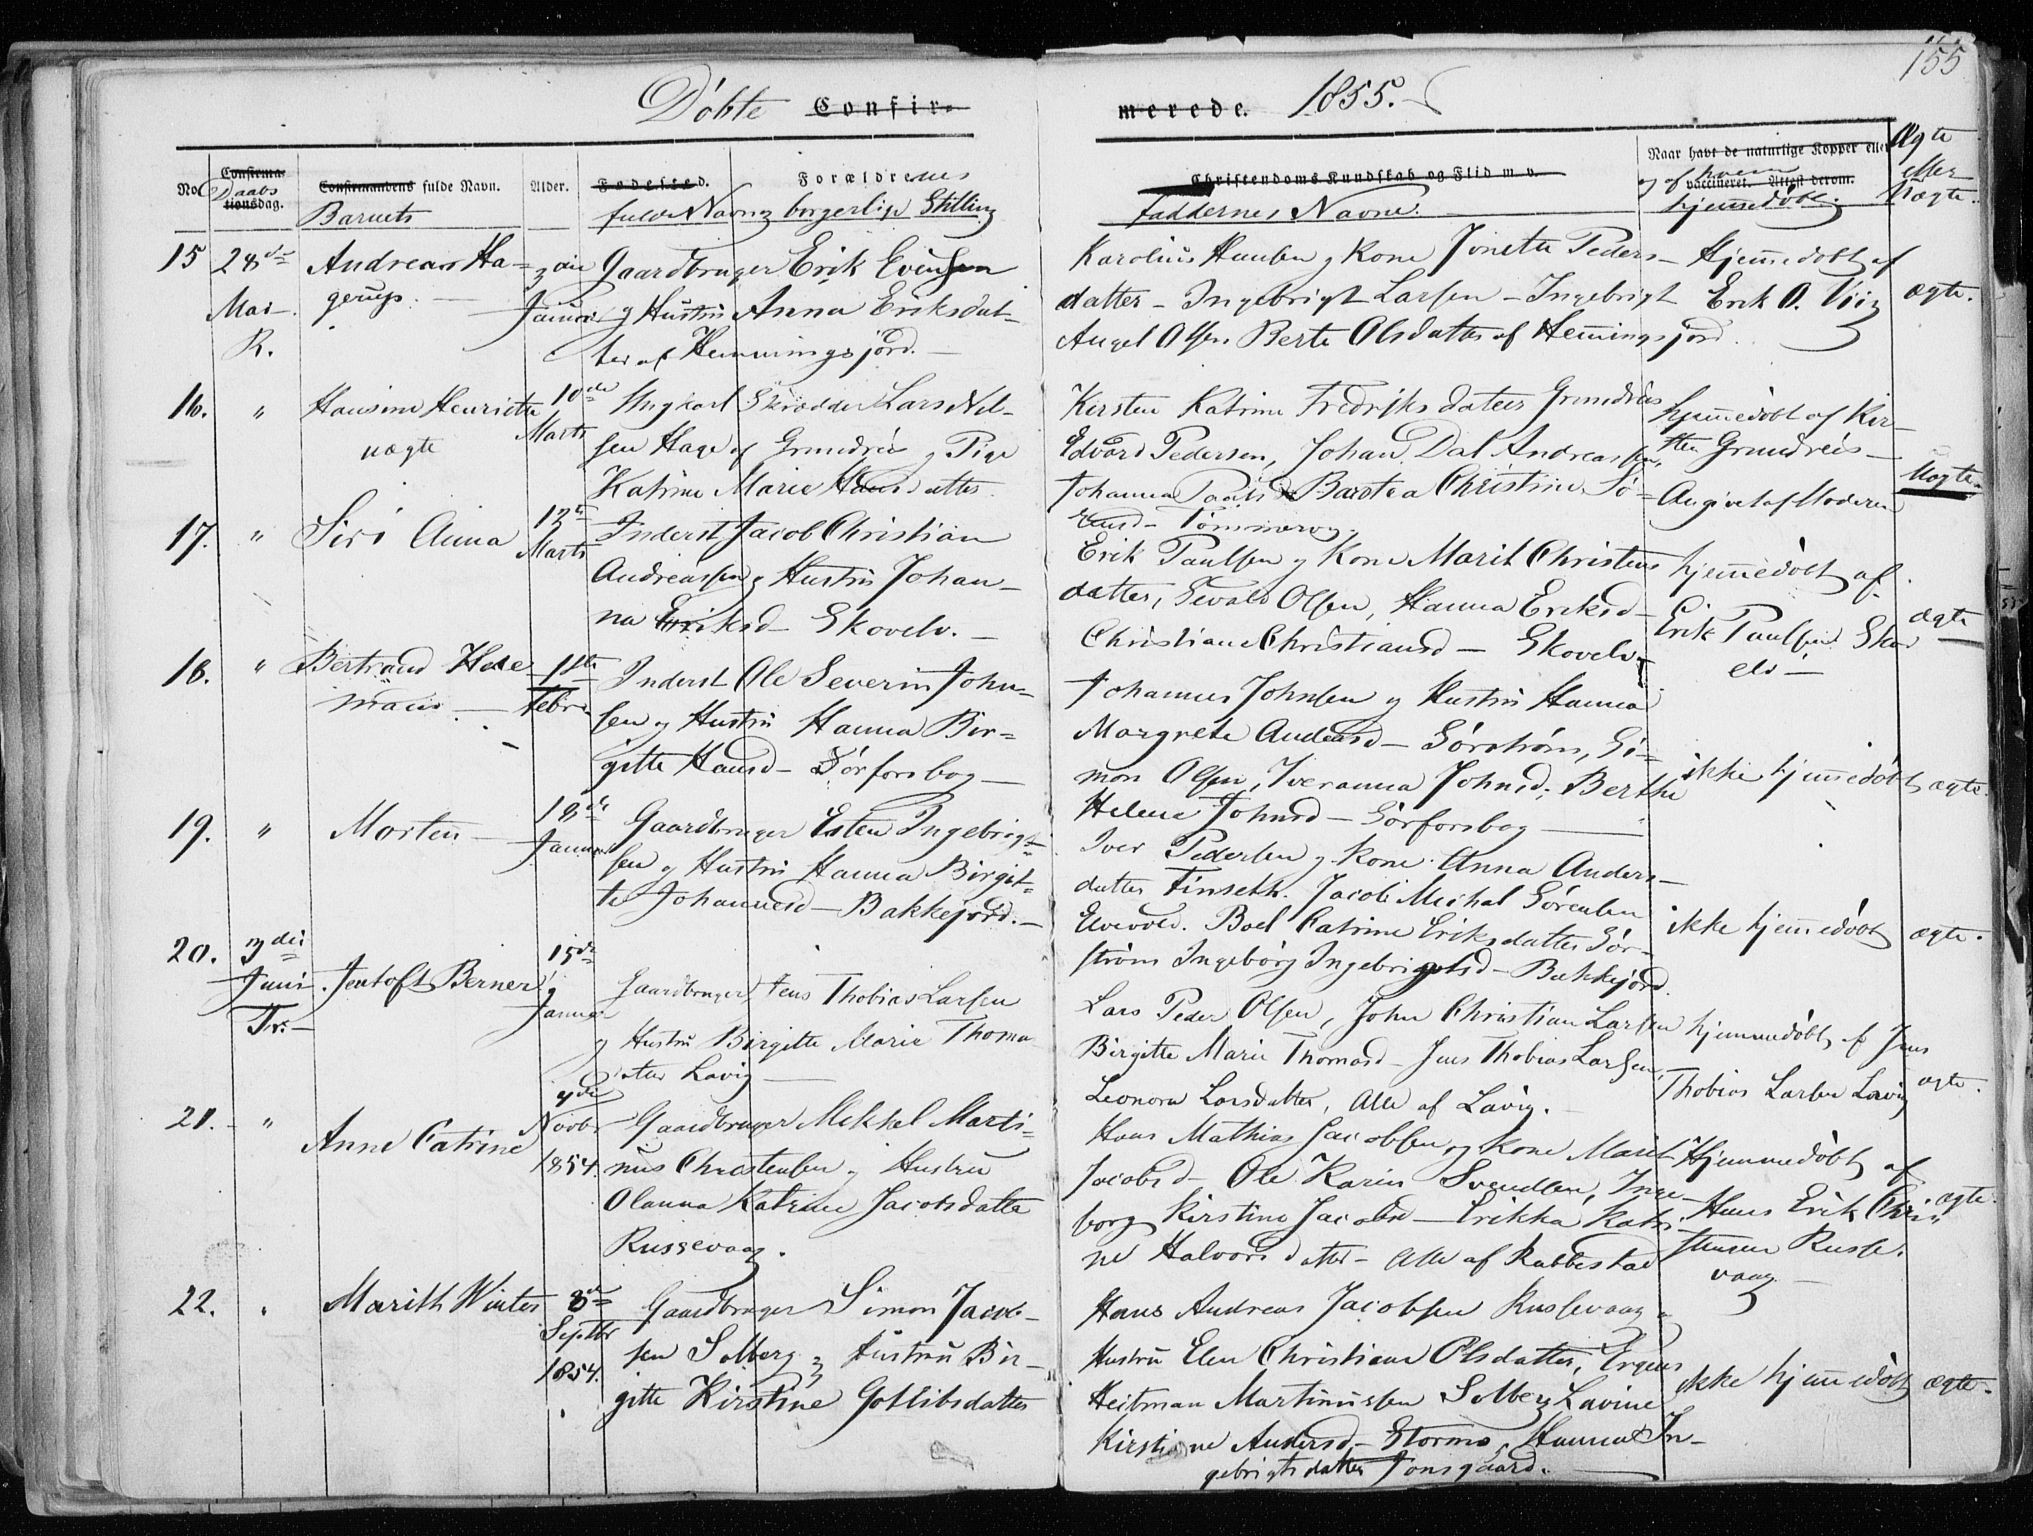 155
Döbte Confir-
merede. 1855.
No.
Confirma-
Daabs
tionsdag.
Confirmandens fulde Navn.
Barnets
Alder.
Fødested.
Forældrenes
fulde Navn og borgerlige Stilling
Christendoms Kundskab og Flid m. v.
Faddernes Navne.
Naar havt de naturlige Kopper eller
og af hvem
vaccineret. Attest derom.
hjemmedöbt.
Ægte
eller
Uægte.
15 28de Mai R.
Andreas Ha-
gerup.
Januar
Gaardbruger Erik Evensen
og Hustru Anna Eriksdat-
ter af Hemmingsjord.
Karolius Hansen og Kone Jonette Peders-
datter - Ingebrigt Larsen - Ingebrigt
Angel Olsen Berte Olsdatter af Hemingsjord.
Hjemedobt af
Erik O. Viig
ægte.
16. "
Hansine Henriette
uægte
10de Marts
Ungkarl Skrædder Lars Nel-
sen Hage af Grundreis og Pige
Katrine Marie Hansdatter.
Kirsten Katrine Fredriksdatter Grundreis
Edvard Pedersen, Johan Dal Andreassen,
Johanna Paulsd Bartea Christine Sö-
rensd - Tömmervog.
hjemedobt af Kir-
sten Grundreis -
Angivet af Moderen
Uægte.
17. "
Siri Anna
13de Marts
Inderst Jacob Christian
Andreassen og Hustru Johan-
na Eriksd - Skovelv. -
Erik Paulsen og Kone Marit Christens
datter, Sevald Olsen, Hanna Eriksd -
Christiane Christiansd - Skovelv
hjemedöbt af
Erik Paulsen Skov
elv -
ægte
18. "
Bertrand Hele
11te Febr.
Inderst Ole Severin John-
sen og Hustru Hanna Bir-
gitte Hansd - Sörforsbog -
Johannes Johnsen og Hustru Hanna
Margrete Andersd - Sörström, Si-
mon Olsen, Iveranna Johnsd, Berthe
Helene Johnsd - Sörforsbog
ikke hjemedobt
ægte.
19. "
Morten
18de Januar
Gaardbruger Esten Ingebrigt-
sen og Hustru Hanna Birgit-
te Johannesd - Bakkejord. -
Iver Pedersen og Kone Anna Anders-
datter Finseth. Jacob Michal Sörensen
Elvevold. Boel Catrine Eriksdatter Sör-
ström Ingeborg Ingebrigtsd - Bakkejord.
ikke hjemedobt
ægte.
20. 3die Juni Tr. -
Jentoft Berner
15de Januar
Gaardbruger Jens Thobias Larsen
og Hustru Birgitte Marie Thoma
datter Lavig
Lars Peder Olsen, John Christian Larsen
Birgitte Marie Thomasd - Jens Thobias Larsen,
Leonora Larsdatter, Alle af Lavig. -
hjemmedöbt af Jens
Thobias Larsen Lavig
ægte.
21. - "
Anne Catrine
Novbr 1854.
Gaardbruger Mikkel Marti-
nus Christensen og Hustru
Olanna Katrine Jacobsdatter
Russevaag.
Hans Mathias Jacobsen og Kone Marit
Jacobsd - Ole Karius Svendsen, Inge-
borg Kirstine Jacobsd - Erikka Katri-
ne Halvorsdatter - Alle af Rabbestad
Hjemmedöbt af
Hans Erik Chri-
stensen Russe-
vaag -
ægte.
22. "
Marith Winter
8de Septbr 1854.
Gaardbruger Simon Jacob-
sen Solberg og Hustru Bir-
gitte Kirstine Gotlibsdatter
Hans Andreas Jacobsen Russevaag og
Hustru Elen Christiane Olsdatter,
Heitman Martinussen Solberg Lavine
Kirstine Andersd - Stormo, Hanna In-
gebrigtsdatter Jonsgaard.
ikke hjemedobt
ægte.